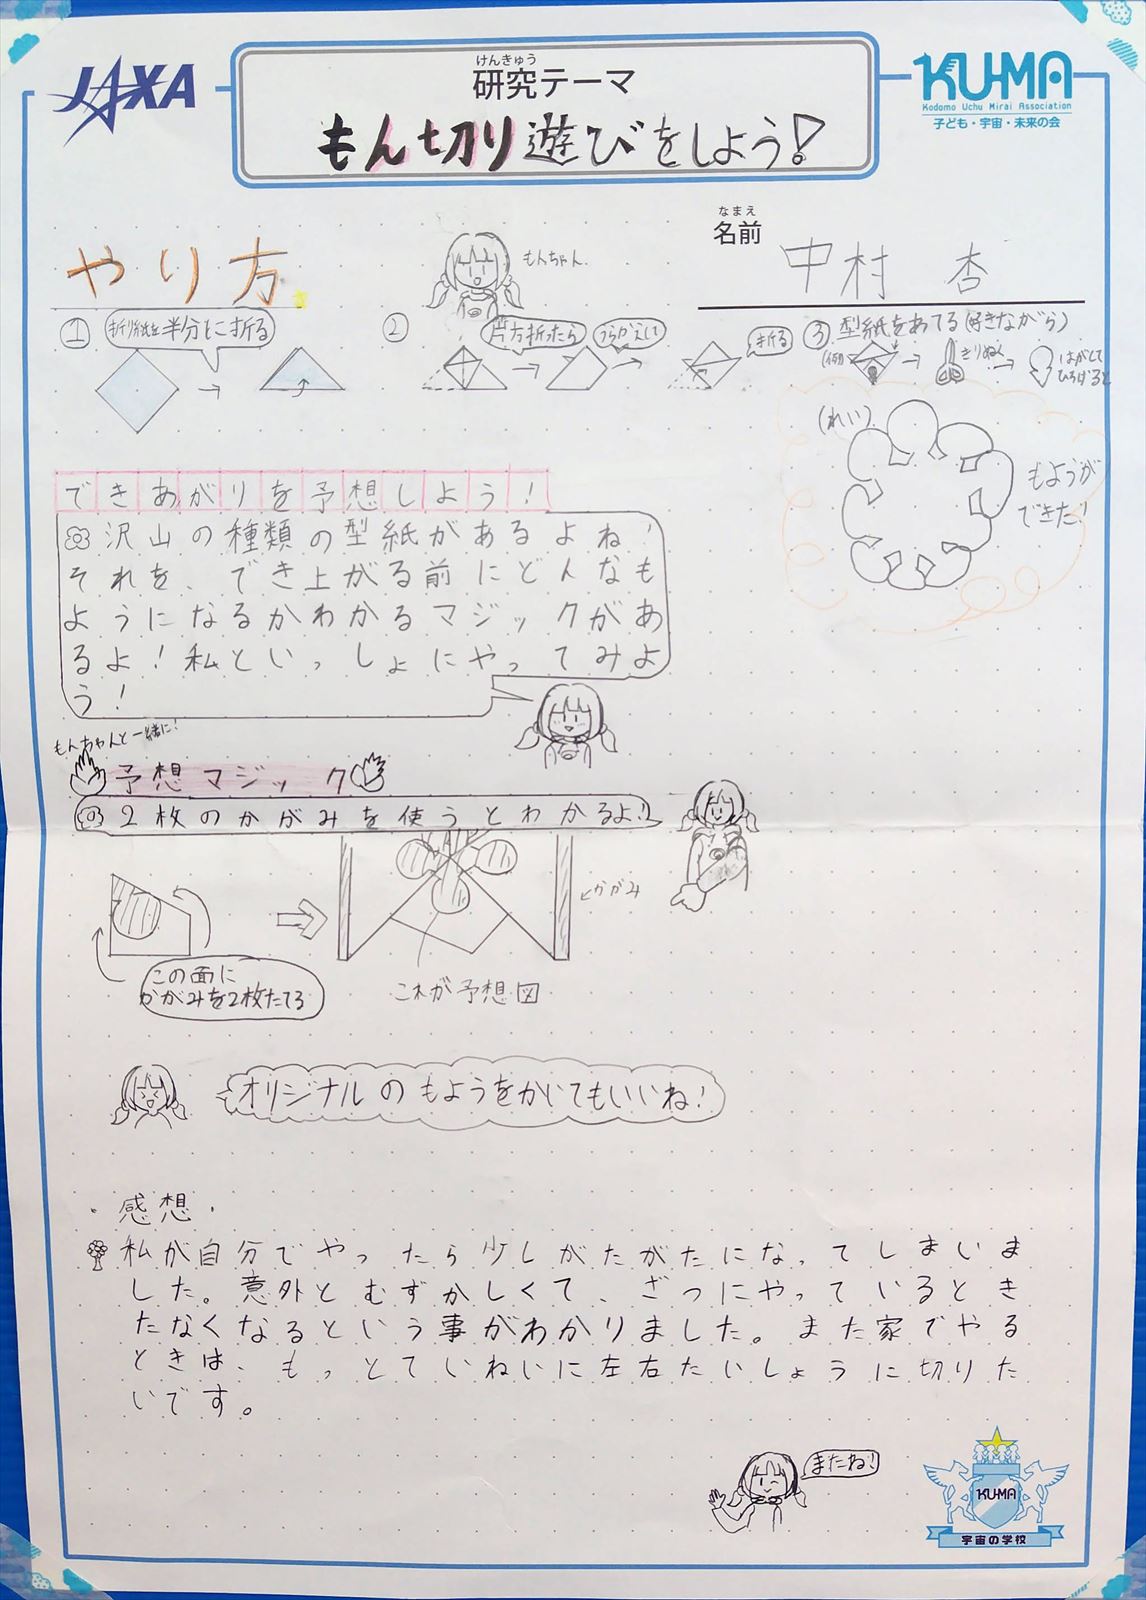 JAXA
けんきゅう
研究テーマ
もん切り遊びをしよう!
KU-MA
Kodomo Uchu Mirai Association
子ども・宇宙・未来の会
なまえ
名前
中村 杏
やり方
もんちゃん
① 折り紙を半分に折る
②
片方折ったら
うらがえして
折る
③ 型紙をあてる(好きながら)
(例)
きりぬく
はがして
ひろげると
(れい)
もようが
できた!
できあがりを予想しよう!
沢山の種類の型紙があるよね!
それを、でき上がる前にどんなも
ようになるかわかるマジックがあ
るよ!私といっしょにやってみよ
う!
もんちゃんと一緒に!
予想マジック
2枚のかがみを使うとわかるよ!
かがみ
この面に
かがみを2枚たてる
これが予想図
オリジナルのもようをかいてもいいね!
・感想・
私が自分でやったら少しがたがたになってしまいま
した。意外とむずかしくて、ざつにやっているとき
たなくなるという事がわかりました。また家でやる
ときは、もっとていねいに左右たいしょうに切りた
いです。
またね!
KU-MA
宇宙の学校